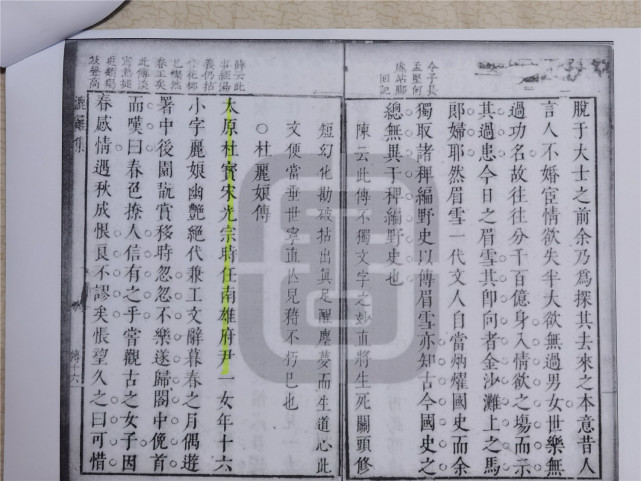 今子長
孟堅何
處站腳
脫于大士之前余乃爲探其去來之本意昔人
言人不婚宦情欲失半大欲無過男女世樂無
過功名故往往分千百億身入情欲之場而示
其過患今日之眉雪其卽向者金沙灘上之馬
郎婦耶然眉雪一代文人自當炳燿國史而余
獨取諸稗編野史以傳眉雪亦知古今國史之
總無異于稗編野史也
陳云此傳不獨文字之妙直將生死關頭修
短幻化勘破拈出眞足醒塵夢而生道心此
文便當垂世寧直見猗不朽已也
○杜麗娘傳
薛云此
事經湯
義仍拈
太原杜寳宋光宗時任南雄府尹一女年十六
小字麗娘幽艷絕代兼工文辭暮春之月偶遊
署中後園賞移時忽忽不樂遂歸閣中俛首
而嘆曰春色撩人信有之乎嘗觀古之女子因
春感情遇秋成恨良不謬矣悵望久之曰可惜
傳十六